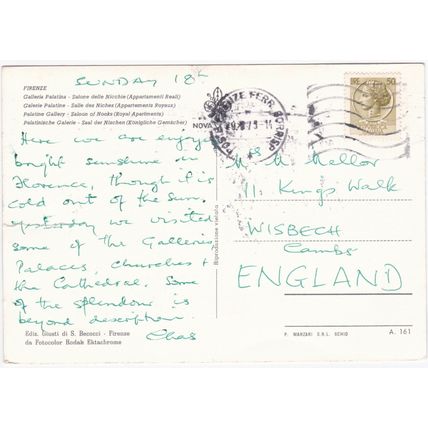 SUNDAY 18th
FIRENZE
Galleria Palatina - Salone delle Nicchie (Appartamenti Reali)
Galerie Palatine - Salle des Niches (Appartements Royaux)
Palatine Gallery - Saloon of Nooks (Royal Apartments)
Palatinische Galerie - Saal der Nischen (Königliche Gemächer)
Here we are enjoying
bright sunshine in
Florence, though it is
cold out of the sun.
Yesterday we visited
some of the Galleries,
Palaces, Churches +
the Cathedral. Some
of the splendour is
beyond description.
Chas
Ediz. Giusti di S. Becocci - Firenze
da Fotocolor Kodak Ektachrome
NOVA
Riproduzione vietata
FIRENZE FERR.
50
Mrs M. Mellor
11. Kings Walk
WISBECH
Cambs
ENGLAND
P. MARZARI S.R.L. SCHIO
A. 161